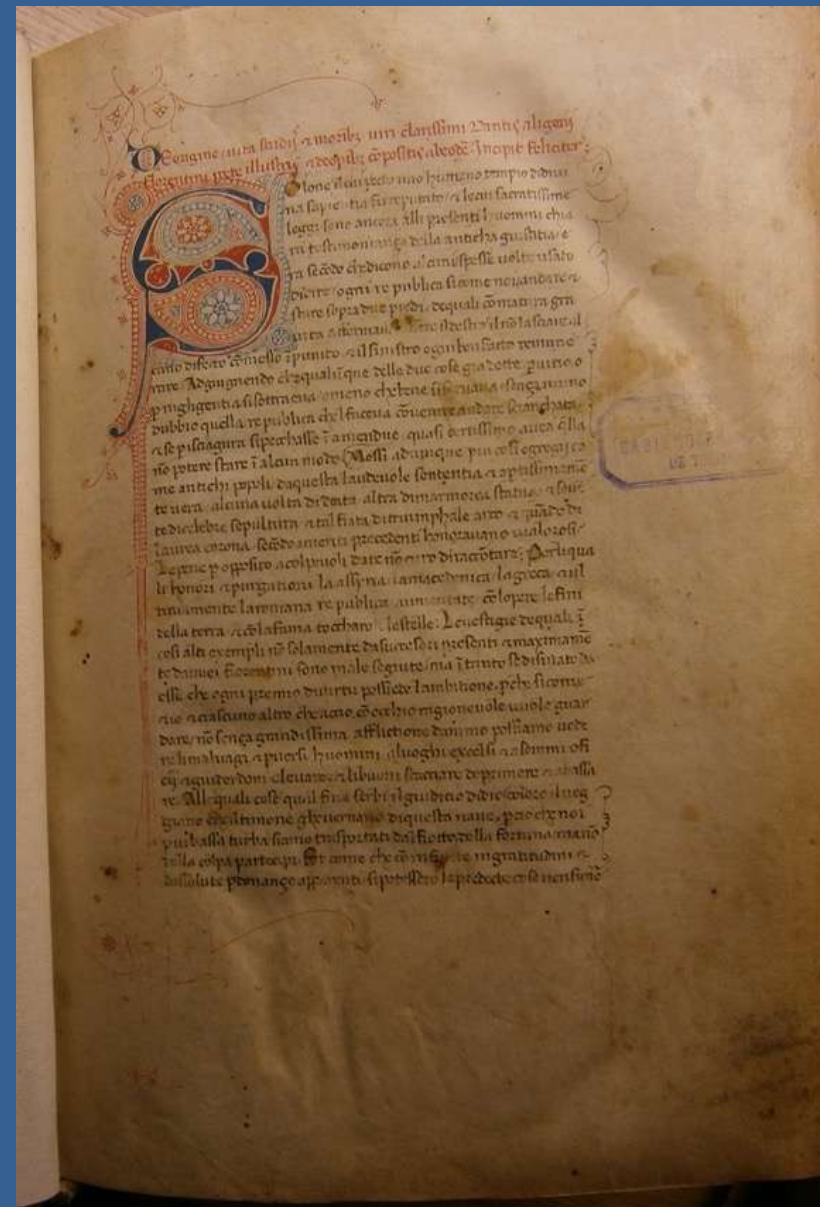 De origine uita studijs ⁊ moribȝ uiri clarissimi Dantis aligerij
florentini poete illustris ⁊ de opibȝ cōpositis ab eodē Incipit feliciter:
Solone il cui pecto uno humano tempio di diui
na sapientia fu reputato ⁊ le cui sacratissime
leggi sono ancora alli presenti huomini chia
ra testimoniança della anticha giustitia e
ra secōdo che dicono alcuni spesse uolte usato
di dire ogni re publica si come noi andare ⁊
stare sopra due piedi de quali cō matura gra
uita affermaua essere il destro il nō lasciare al
cuno difecto cōmesso īpunito ⁊ il sinistro ogni ben facto remune
rare Adgiugnendo che qualūque delle due cose gia dette p uitio o
p nighgentia si sottraeua o meno che bene si seruaua sença niuno
dubbio quella re publica chel faceua cōuenire andare sciancata
⁊ se p isciagura si pecchasse ī amendue quasi certissimo auea q̄lla
nō potere stare ī alcun modo Mossi adunque piu cosi egregij co
me antichi popoli da questa laudeuole sententia ⁊ aptissimamē
te uera alcuna uolta di deita altra di marmorea statua ⁊ soué
te di celebre sepultura ⁊ tal fiata di triumphale arco ⁊ quādo di
laurea corona secōdo i meriti precedenti honorauano i ualorosi
Le pene p opposito a colpeuoli date nō curo di raccōtare Per li qua
li honori ⁊ purgationi la assyria la macedonica la greca ⁊ ul
timamente la romana re publica aumentate cō lopere le fini
della terra ⁊ cō la fama toccharo le stelle: Le uestigie de quali ī
cosi alti exempli nō solamente da succesori presenti ⁊ maximamē
te da miei fiorentini sono male seguite ma ī tanto se disuiato da
esse che ogni premio di uirtu possiede lambitione pche si come
⁊ io ⁊ ciascuno altro che a cio cō occhio ragioneuole uuole guar
dare nō sença grandissima afflictione danimo possiamo uede
re li maluagi ⁊ peruersi huomini a luoghi excelsi ⁊ a sommi ofi
cij ⁊ guiderdoni eleuare ⁊ li buoni scacciare deprimere ⁊ abassa
re Alle quali cose qual fine serbi il giudicio di dio coloro il ueg
giano che il timone ghouernano di questa naue pcio che noi
piu bassa turba siamo trasportati dal fiotto della fortuna ma nō
della colpa partecipi Et come che cō infinite ingratitudini ⁊
dissolute pdonançe apparenti si potessero le predecte cose uerificare